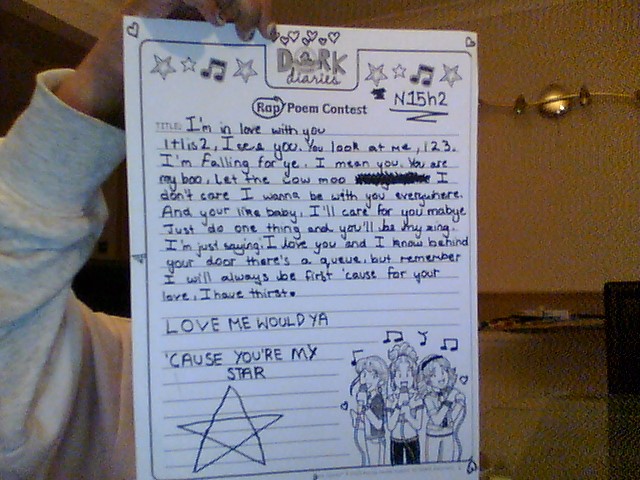 DORK
diaries
Rap Poem Contest
N15h2
TITLE: I'm in love with you
1+1is2, I see you. You look at me, 123.
I'm falling for ye. I mean you. You are
my boo, Let the cow moo I
don't care I wanna be with you everywhere.
And your like baby, I'll care for you mabye
Just do one thing and you'll be my zing.
I'm just saying. I love you and I know behind
your door there's a queue, but remember
I will always be first 'cause for your
love, I have thirst.
LOVE ME WOULD YA
'CAUSE YOU'RE MY
STAR